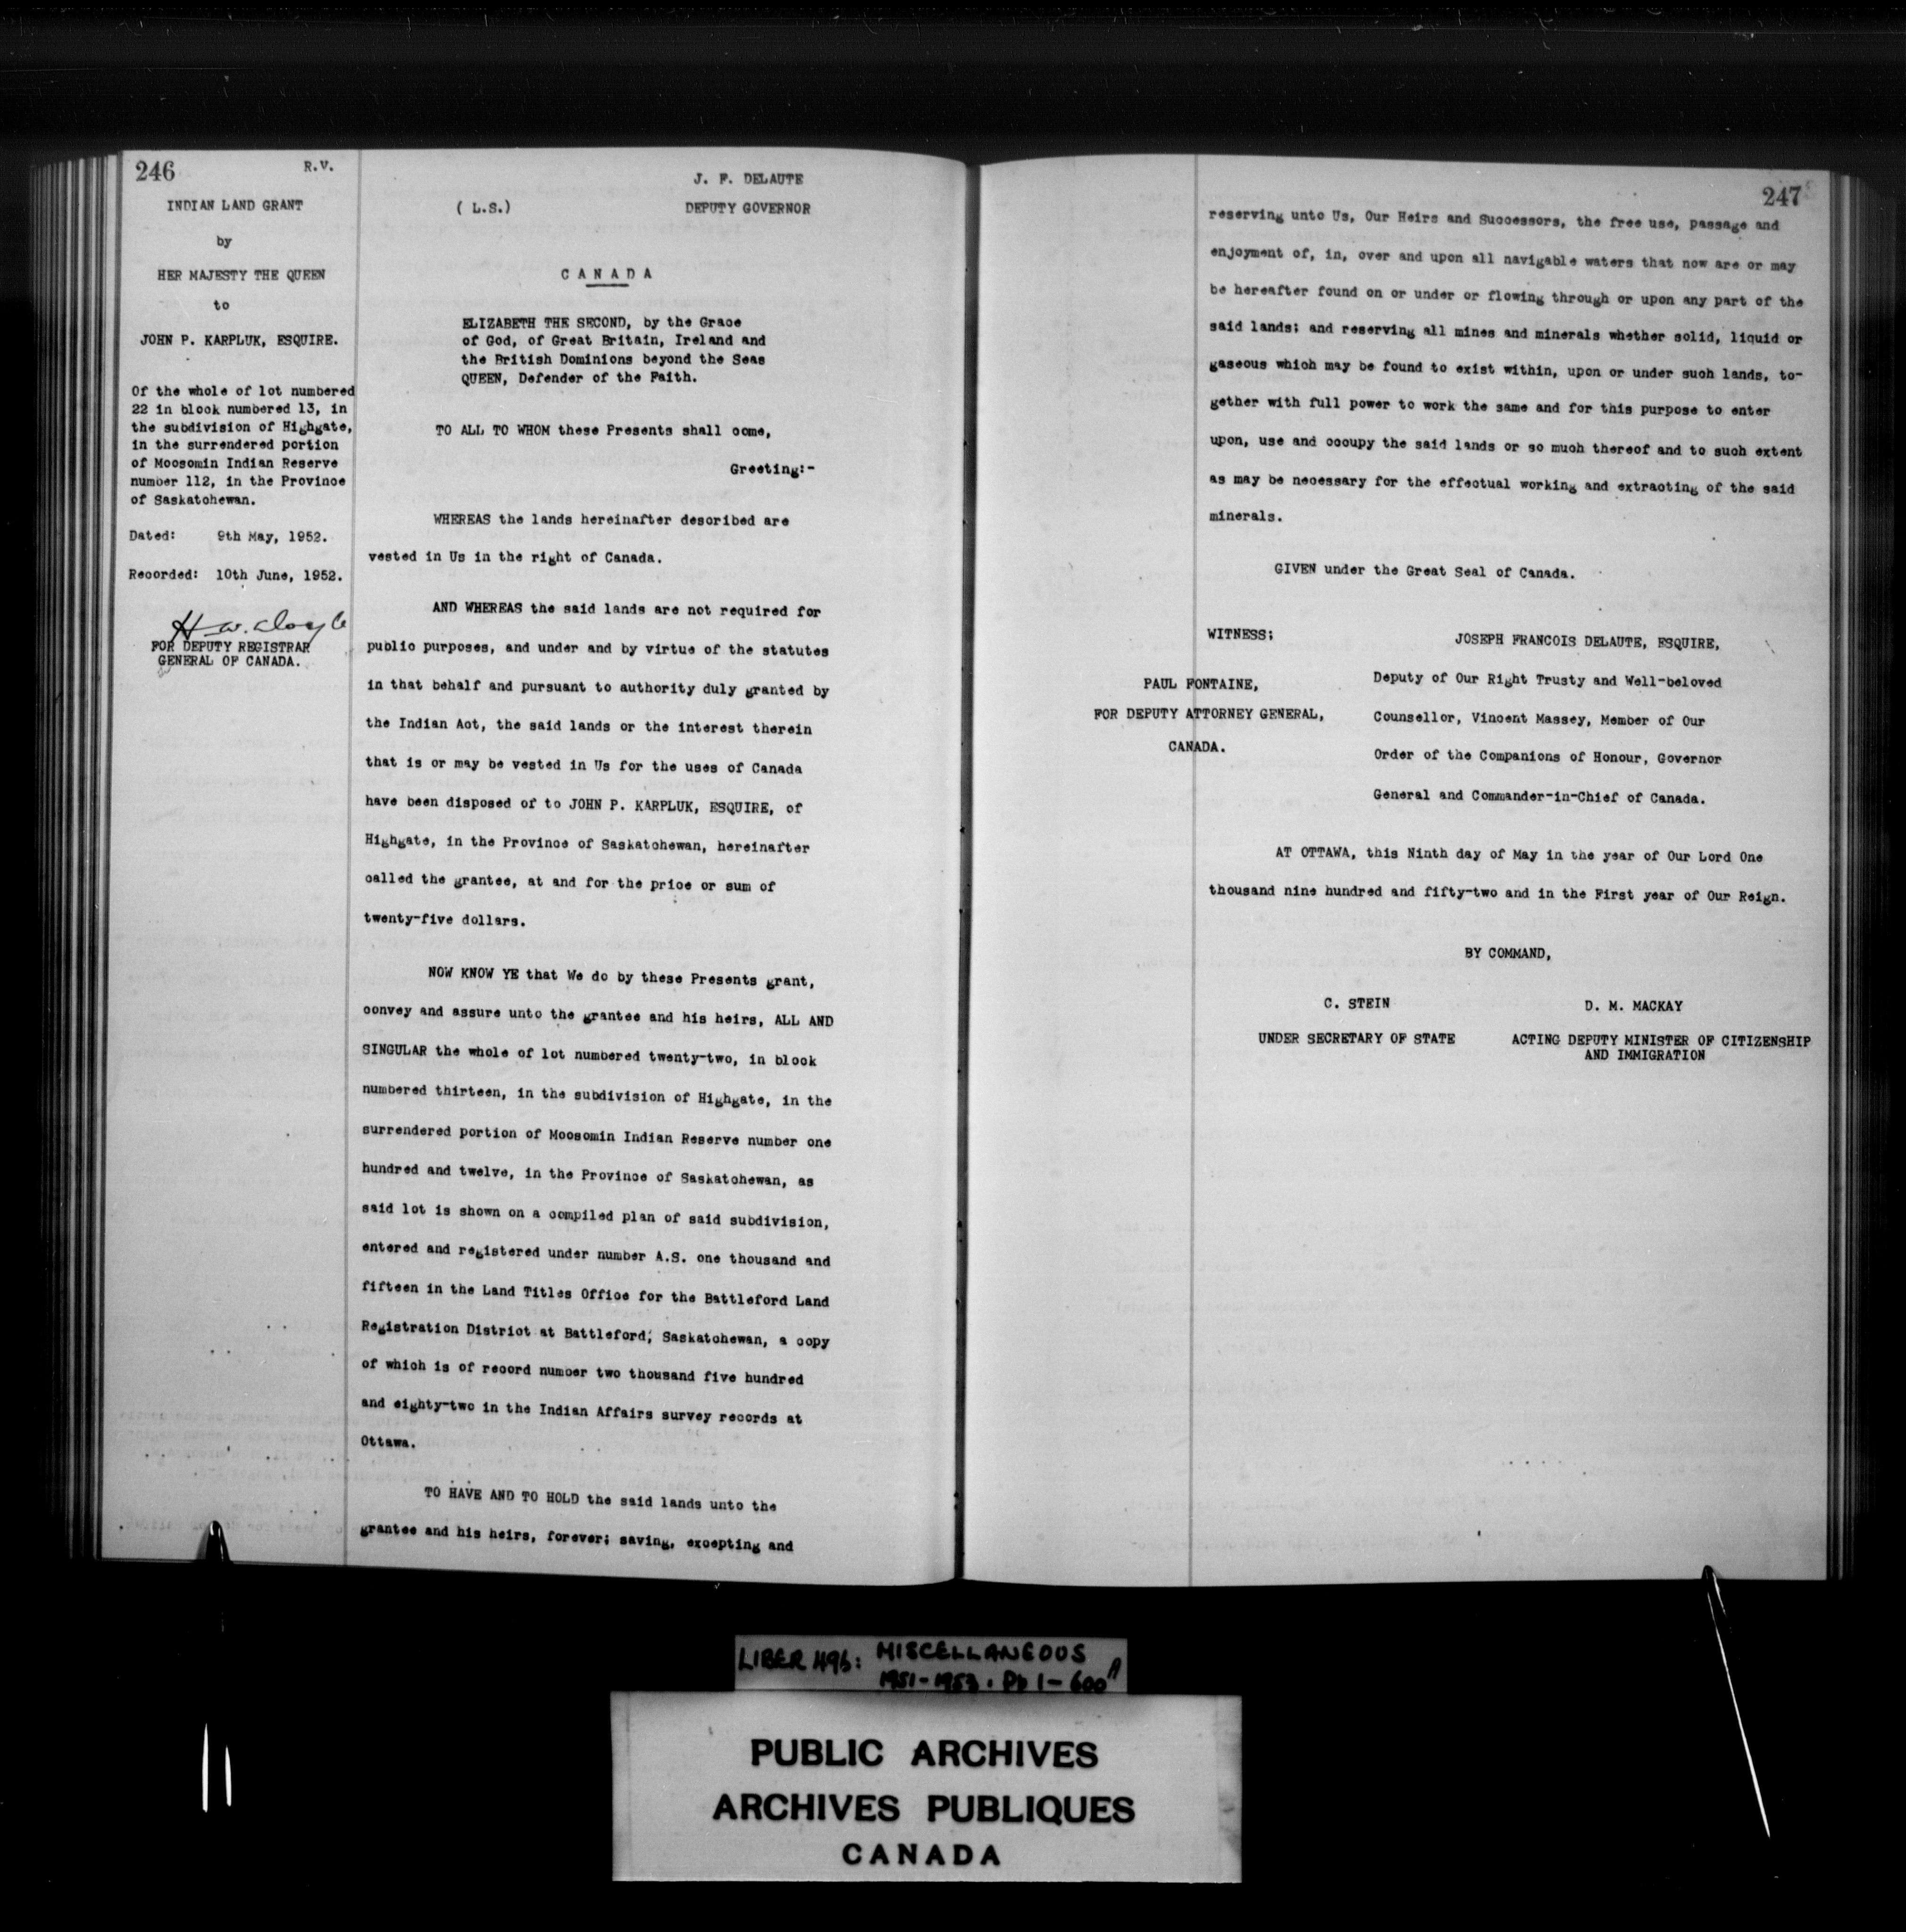 246
R.V.
INDIAN LAND GRANT
by
HER MAJESTY THE QUEEN
to
JOHN P. KARPLUK, ESQUIRE.
Of the whole of lot numbered
22 in block numbered 13, in
the subdivision of Highgate,
in the surrendered portion
of Moosomin Indian Reserve
number 112, in the Province
of Saskatchewan.
Dated: 9th May, 1952.
Recorded: 10th June, 1952.
H W. Doyle
FOR DEPUTY REGISTRAR
GENERAL OF CANADA.
J. F. DELAUTE
( L.S.) DEPUTY GOVERNOR
C A N A D A
ELIZABETH THE SECOND, by the Grace
of God, of Great Britain, Ireland and
the British Dominions beyond the Seas
QUEEN, Defender of the Faith.
TO ALL TO WHOM these Presents shall come,
Greeting:-
WHEREAS the lands hereinafter described are
vested in Us in the right of Canada.
AND WHEREAS the said lands are not required for
public purposes, and under and by virtue of the statutes
in that behalf and pursuant to authority duly granted by
the Indian Act, the said lands or the interest therein
that is or may be vested in Us for the uses of Canada
have been disposed of to JOHN P. KARPLUK, ESQUIRE, of
Highgate, in the Province of Saskatchewan, hereinafter
called the grantee, at and for the price or sum of
twenty-five dollars.
NOW KNOW YE that We do by these Presents grant,
convey and assure unto the grantee and his heirs, ALL AND
SINGULAR the whole of lot numbered twenty-two, in block
numbered thirteen, in the subdivision of Highgate, in the
surrendered portion of Moosomin Indian Reserve number one
hundred and twelve, in the Province of Saskatchewan, as
said lot is shown on a compiled plan of said subdivision,
entered and registered under number A.S. one thousand and
fifteen in the Land Titles Office for the Battleford Land
Registration District at Battleford, Saskatchewan, a copy
of which is of record number two thousand five hundred
and eighty-two in the Indian Affairs survey records at
Ottawa.
TO HAVE AND TO HOLD the said lands unto the
grantee and his heirs, forever; saving, excepting and
247
reserving unto Us, Our Heirs and Successors, the free use, passage and
enjoyment of, in, over and upon all navigable waters that now are or may
be hereafter found on or under or flowing through or upon any part of the
said lands; and reserving all mines and minerals whether solid, liquid or
gaseous which may be found to exist within, upon or under such lands, to-
gether with full power to work the same and for this purpose to enter
upon, use and occupy the said lands or so much thereof and to such extent
as may be necessary for the effectual working and extracting of the said
minerals.
GIVEN under the Great Seal of Canada.
WITNESS;
JOSEPH FRANCOIS DELAUTE, ESQUIRE,
Deputy of Our Right Trusty and Well-beloved
Counsellor, Vincent Massey, Member of Our
Order of the Companions of Honour, Governor
General and Commander-in-Chief of Canada.
PAUL FONTAINE,
FOR DEPUTY ATTORNEY GENERAL,
CANADA.
AT OTTAWA, this Ninth day of May in the year of Our Lord One
thousand nine hundred and fifty-two and in the First year of Our Reign.
BY COMMAND,
C. STEIN
UNDER SECRETARY OF STATE
D. M. MACKAY
ACTING DEPUTY MINISTER OF CITIZENSHIP
AND IMMIGRATION
LIBER 496: MISCELLANEOUS
1951-1953. Pp 1-600A
PUBLIC ARCHIVES
ARCHIVES PUBLIQUES
CANADA